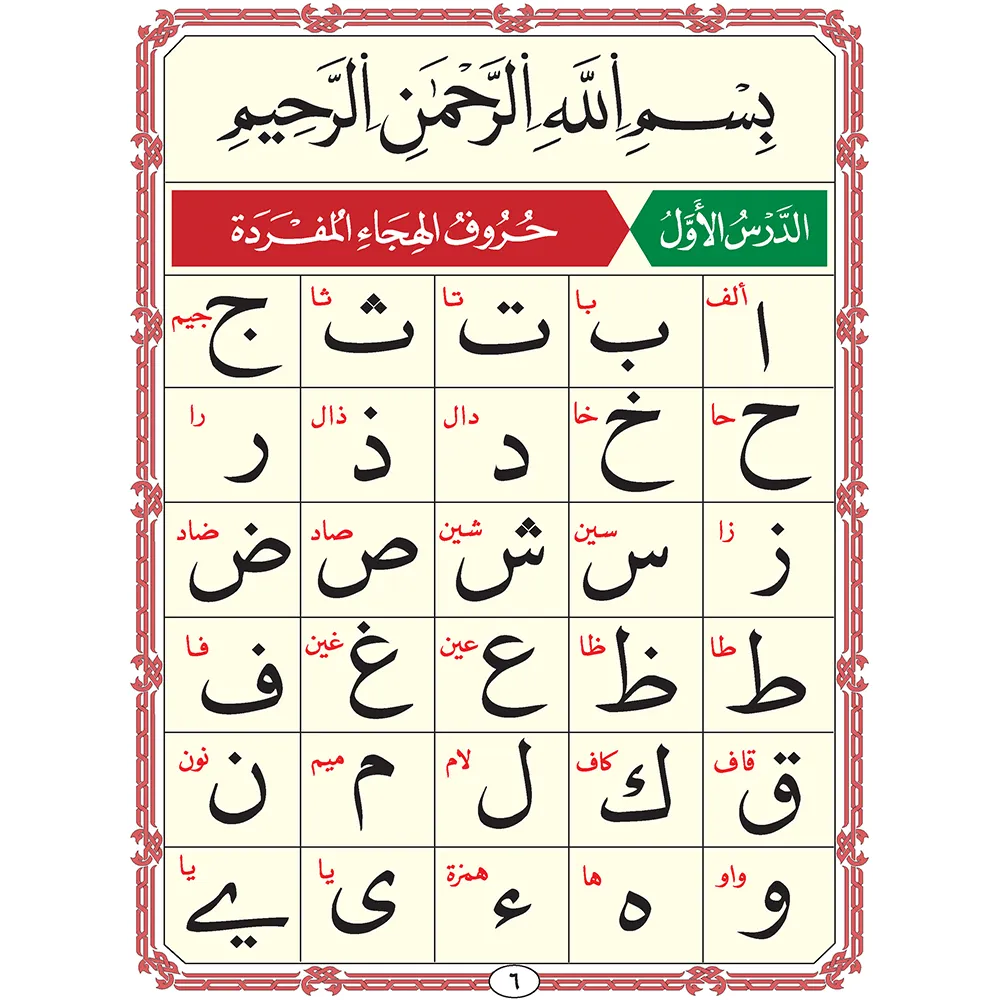 بِسْمِ اللَّهِ الرَّحْمَٰنِ الرَّحِيمِ
الدَّرْسُ الأَوَّلُ حُرُوفُ الهِجَاءِ المُفْرَدَة
ألف ا با ب تا ت ثا ث جيم ج
حا ح خا خ دال د ذال ذ را ر
زا ز سين س شين ش صاد ص ضاد ض
طا ط ظا ظ عين ع غين غ فا ف
قاف ق كاف ك لام ل ميم م نون ن
واو و ها ه همزة ء يا ى يا ے
٦